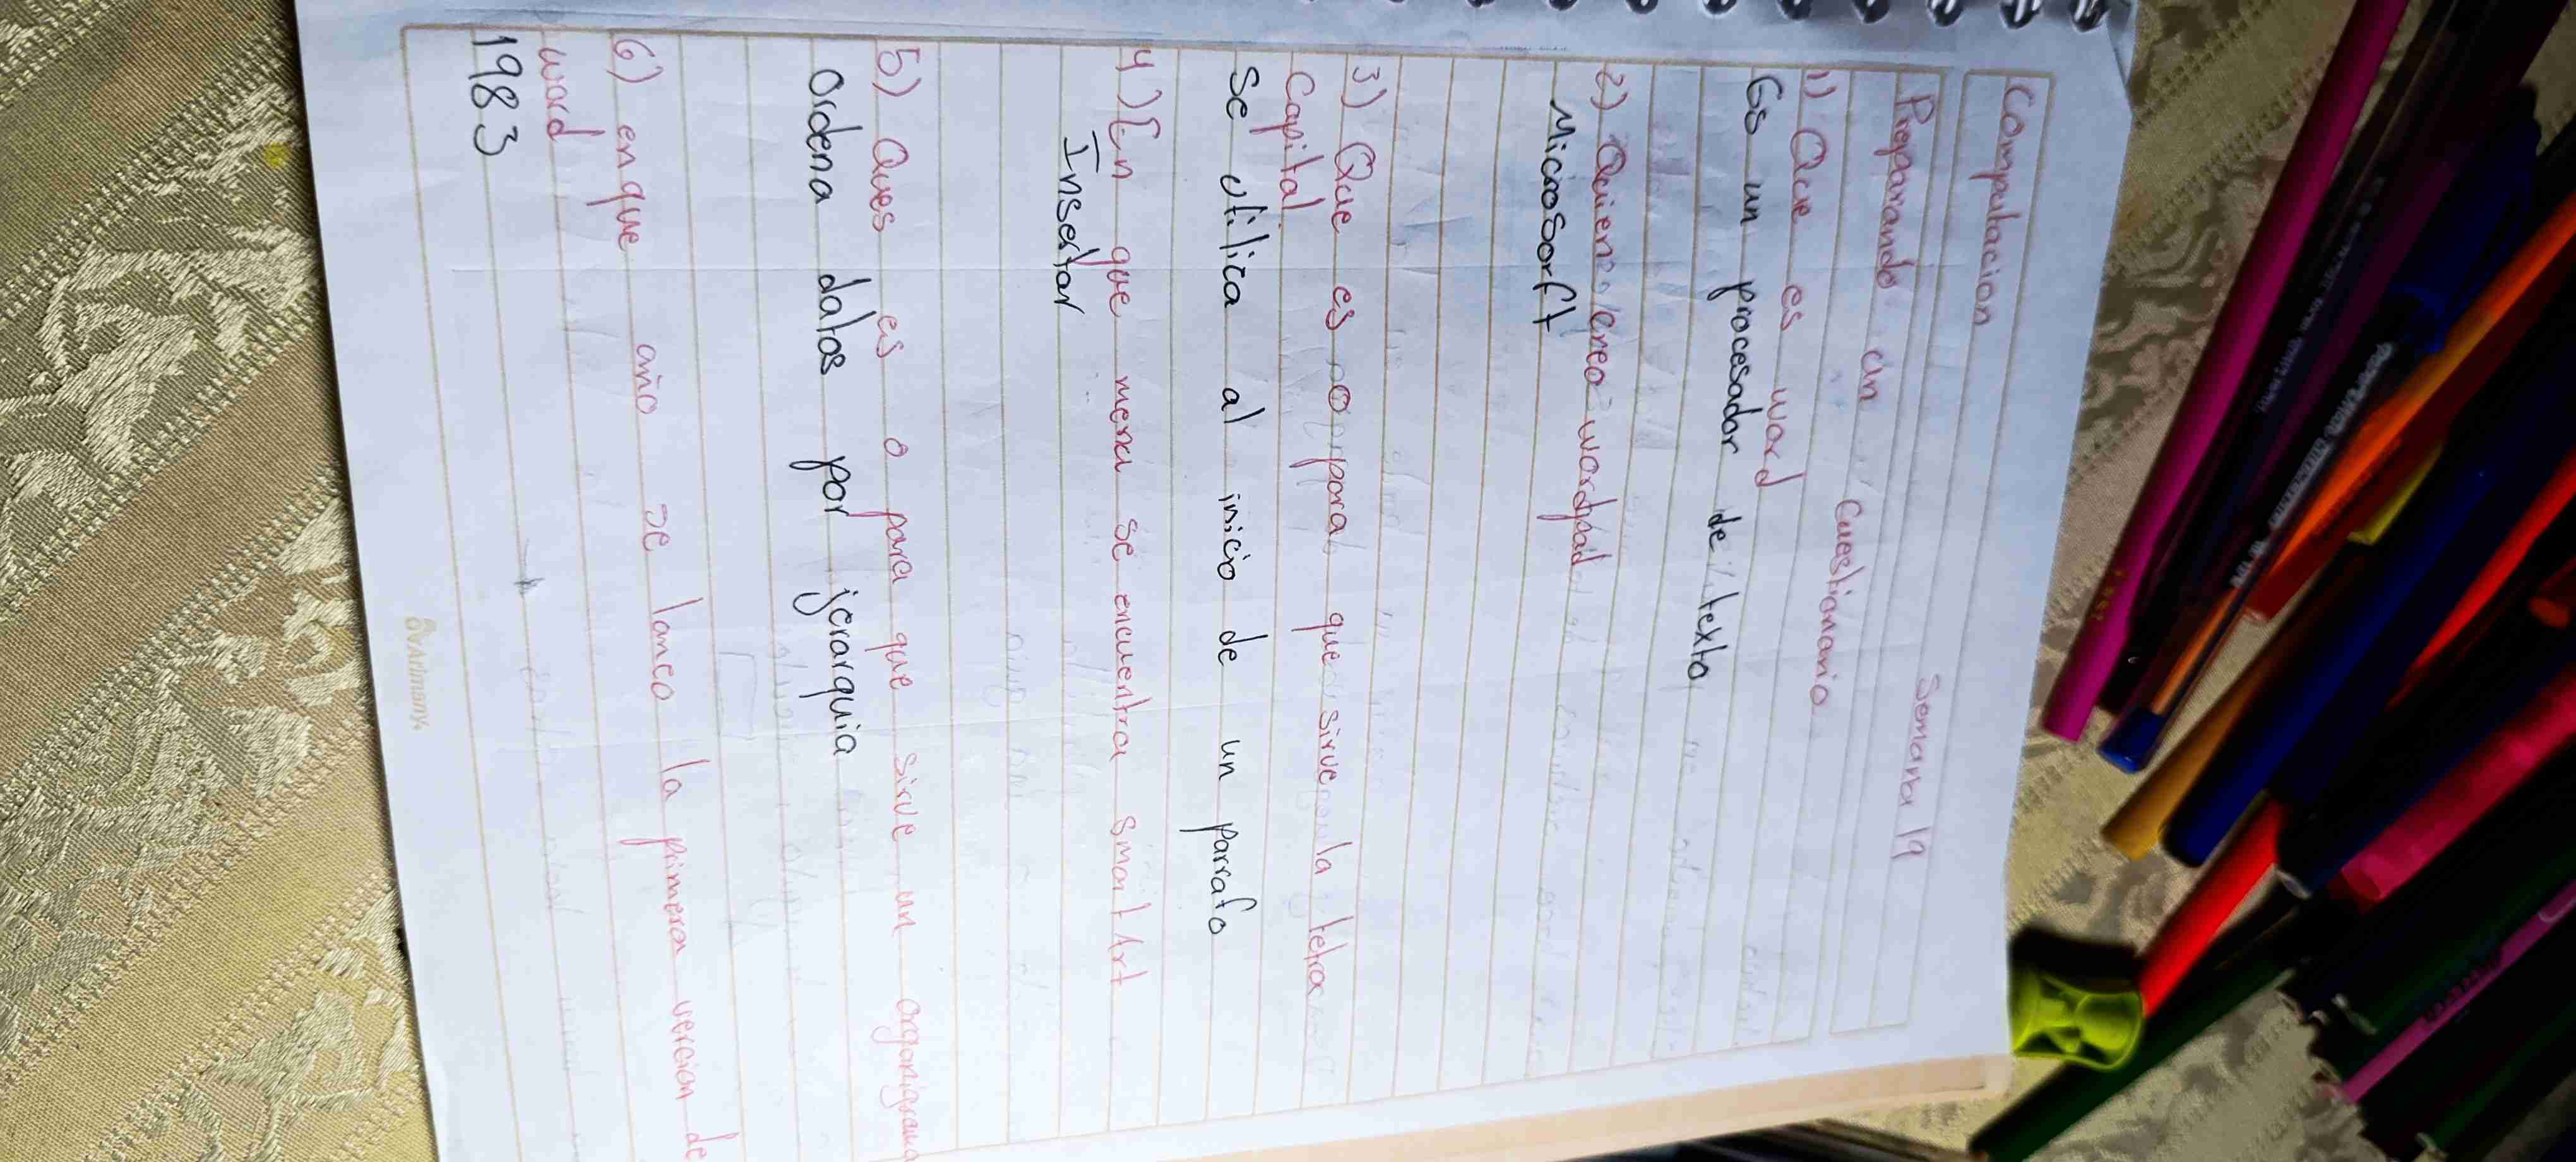 Computacion
Semana 19
Preparando un cuestionario
1) Que es word
Es un procesador de texto
2) Quien creo wordpad
Microsorft
3) Que es o para que sirve la letra
Capital
Se utilica al inicio de un parafo
4) En que menu se encuentra smart Art
Insertar
5) Ques es o para que sirve un organigrama
Ordena datos por jerarquia
6) en que año se lanco la primera vercion de
word
1983